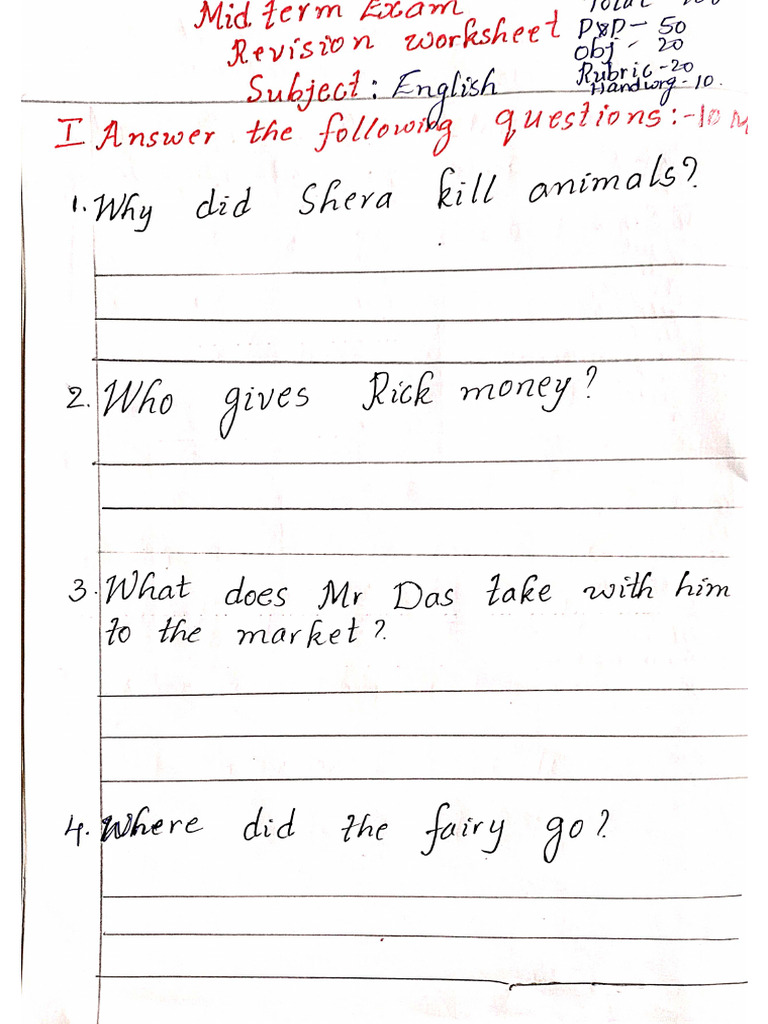 Mid term Exam
Revision worksheet
Subject: English
P&P- 50
Obj - 20
Rubric-20
Handwrg-10.
I Answer the following questions:-10 M
1. Why did Shera kill animals?
2. Who gives Rick money?
3. What does Mr Das take with him
to the market?
4. Where did the fairy go?